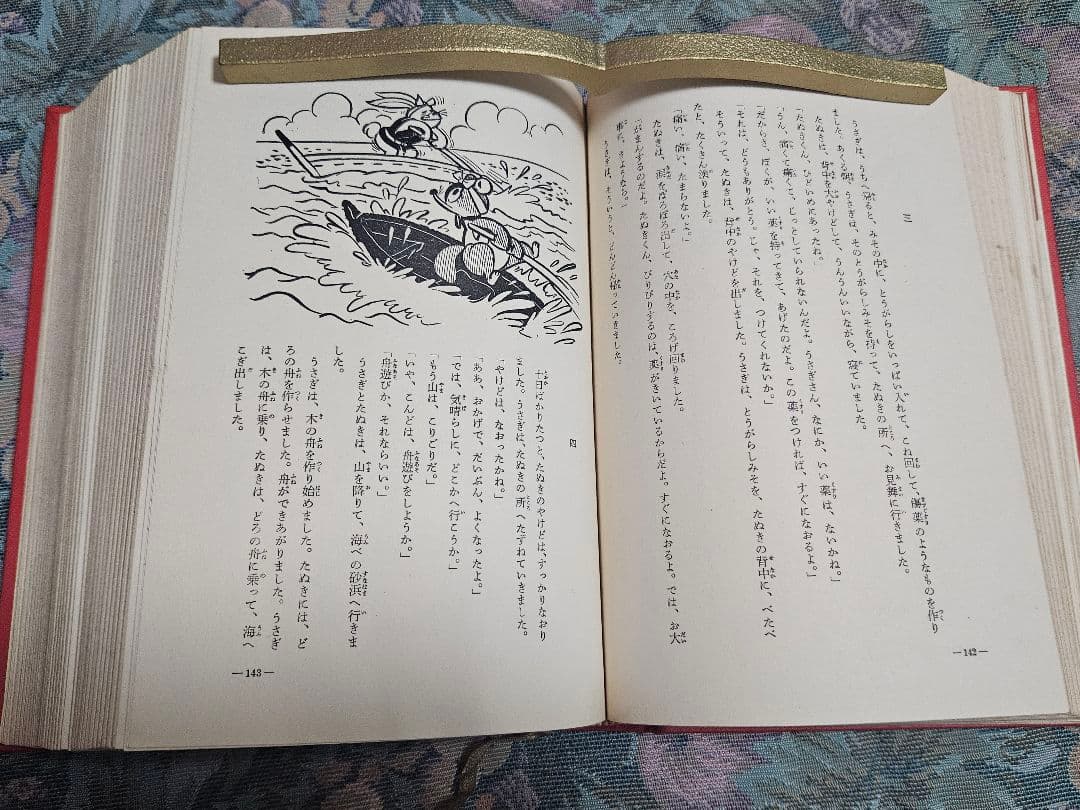 三
うさぎは、うちへ帰ると、みその中に、とうがらしをいっぱい入れて、こね回して、傷薬のようなものを作り
ました。あくる朝、うさぎは、そのとうがらしみそを持って、たぬきの所へ、お見舞に行きました。
たぬきは、背中を大やけどして、うんうんいいながら、寝ていました。
「たぬきくん、ひどいめにあったね。」
「うん、痛くて痛くて、じっとしていられないんだよ。うさぎさん、なにか、いい薬は、ないかね。」
「だからさ、ぼくが、いい薬を持ってきて、あげたのだよ。この薬をつければ、すぐになおるよ。」
「それは、どうもありがとう。じゃ、それを、つけてくれないか。」
そういって、たぬきは、背中のやけどを出しました。うさぎは、とうがらしみそを、たぬきの背中に、べたべ
たと、たくさん塗りました。
「痛い、痛い、たまらないよ。」
たぬきは、涙をぽろぽろ出して、穴の中を、ころげ回りました。
「がまんするのだよ。たぬきくん、ぴりぴりするのは、薬がきいているからだよ。すぐになおるよ。では、お大
事に、さようなら。」
うさぎは、そういうと、どんどん帰っていきました。
—142—
四
十日ばかりたつと、たぬきのやけどは、すっかりなおり
ました。うさぎは、たぬきの所へたずねていきました。
「やけどは、なおったかね。」
「ああ、おかげで、だいぶん、よくなったよ。」
「では、気晴らしに、どこかへ行こうか。」
「もう山は、こりごりだ。」
「いや、こんどは、舟遊びをしようか。」
「舟遊びか、それならいい。」
うさぎとたぬきは、山を降りて、海べの砂浜へ行きま
した。
うさぎは、木の舟を作り始めました。たぬきには、ど
ろの舟を作らせました。舟ができあがりました。うさぎ
は、木の舟に乗り、たぬきは、どろの舟に乗って、海へ
こぎ出しました。
—143—